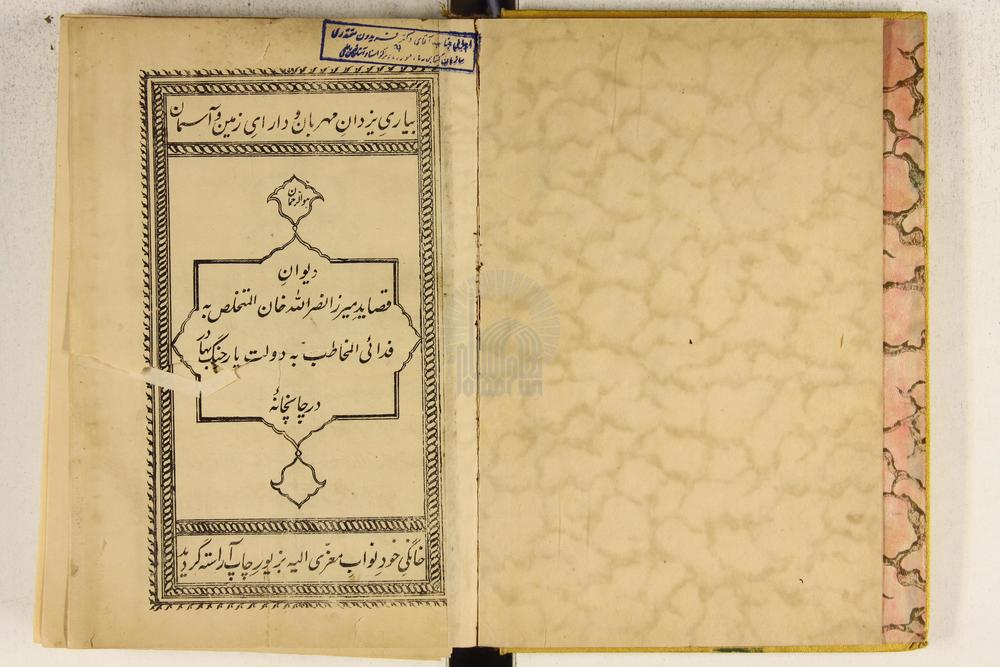 اهدائی جناب آقای دکتر فریدون مقتدری
به
بیاریِ یزدانِ مهربان و دارایِ زمین و آسمان
هوالرحمان
دیوانِ
قصایدِ میرزا نصر الله خان المتخلص به
فدائی المخاطب به دولت یار جنگ بهادر
در چاپخانهٔ
خانگیِ خودِ نواب معزّی الیه بزیورِ چاپ آراسته گردید